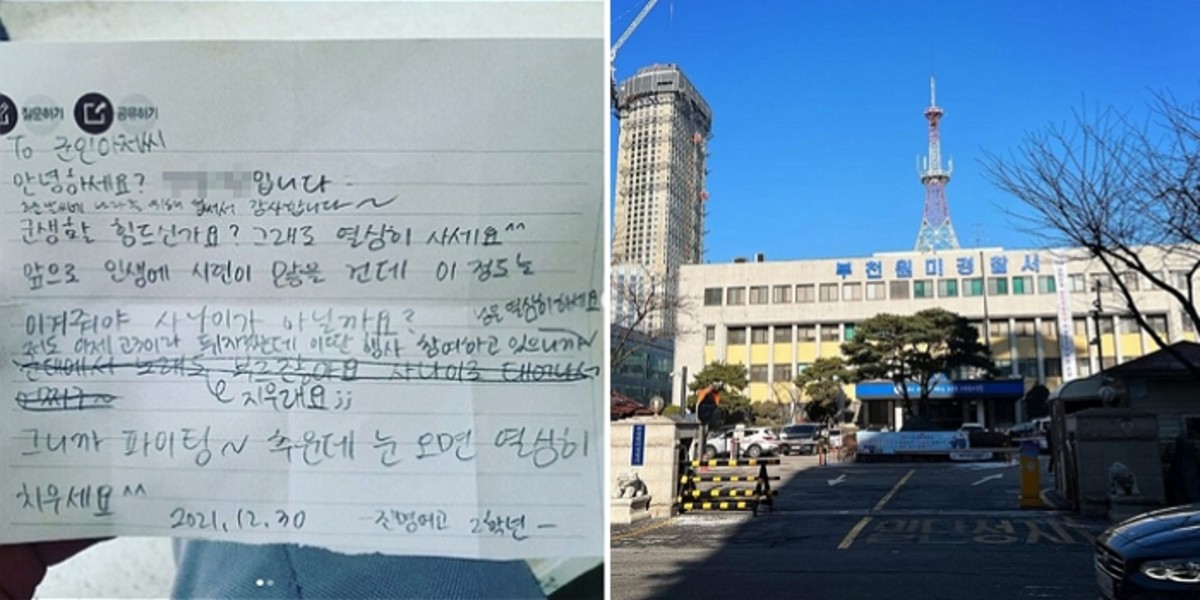 질문하기 공유하기
To 군인아저씨
안녕하세요? 입니다
감사합니다~
군생활 힘드신가요? 그래도 열심히 사세요^^
앞으로 인생에 시련이 많을 건데 이 정도는
이겨줘야 사나이가 아닐까요?
눈은 열심히 하세요
저도 이제 고3이라 뒤지겠는데 이딴 행사 참여하고 있으니까~
군대에서 노래도 부르잖아요 사나이로 태어나서
지우래요;;
그니까 파이팅~ 추운데 눈 오면 열심히
치우세요^^
2021.12.30 -진명여고 2학년-
부천원미경찰서